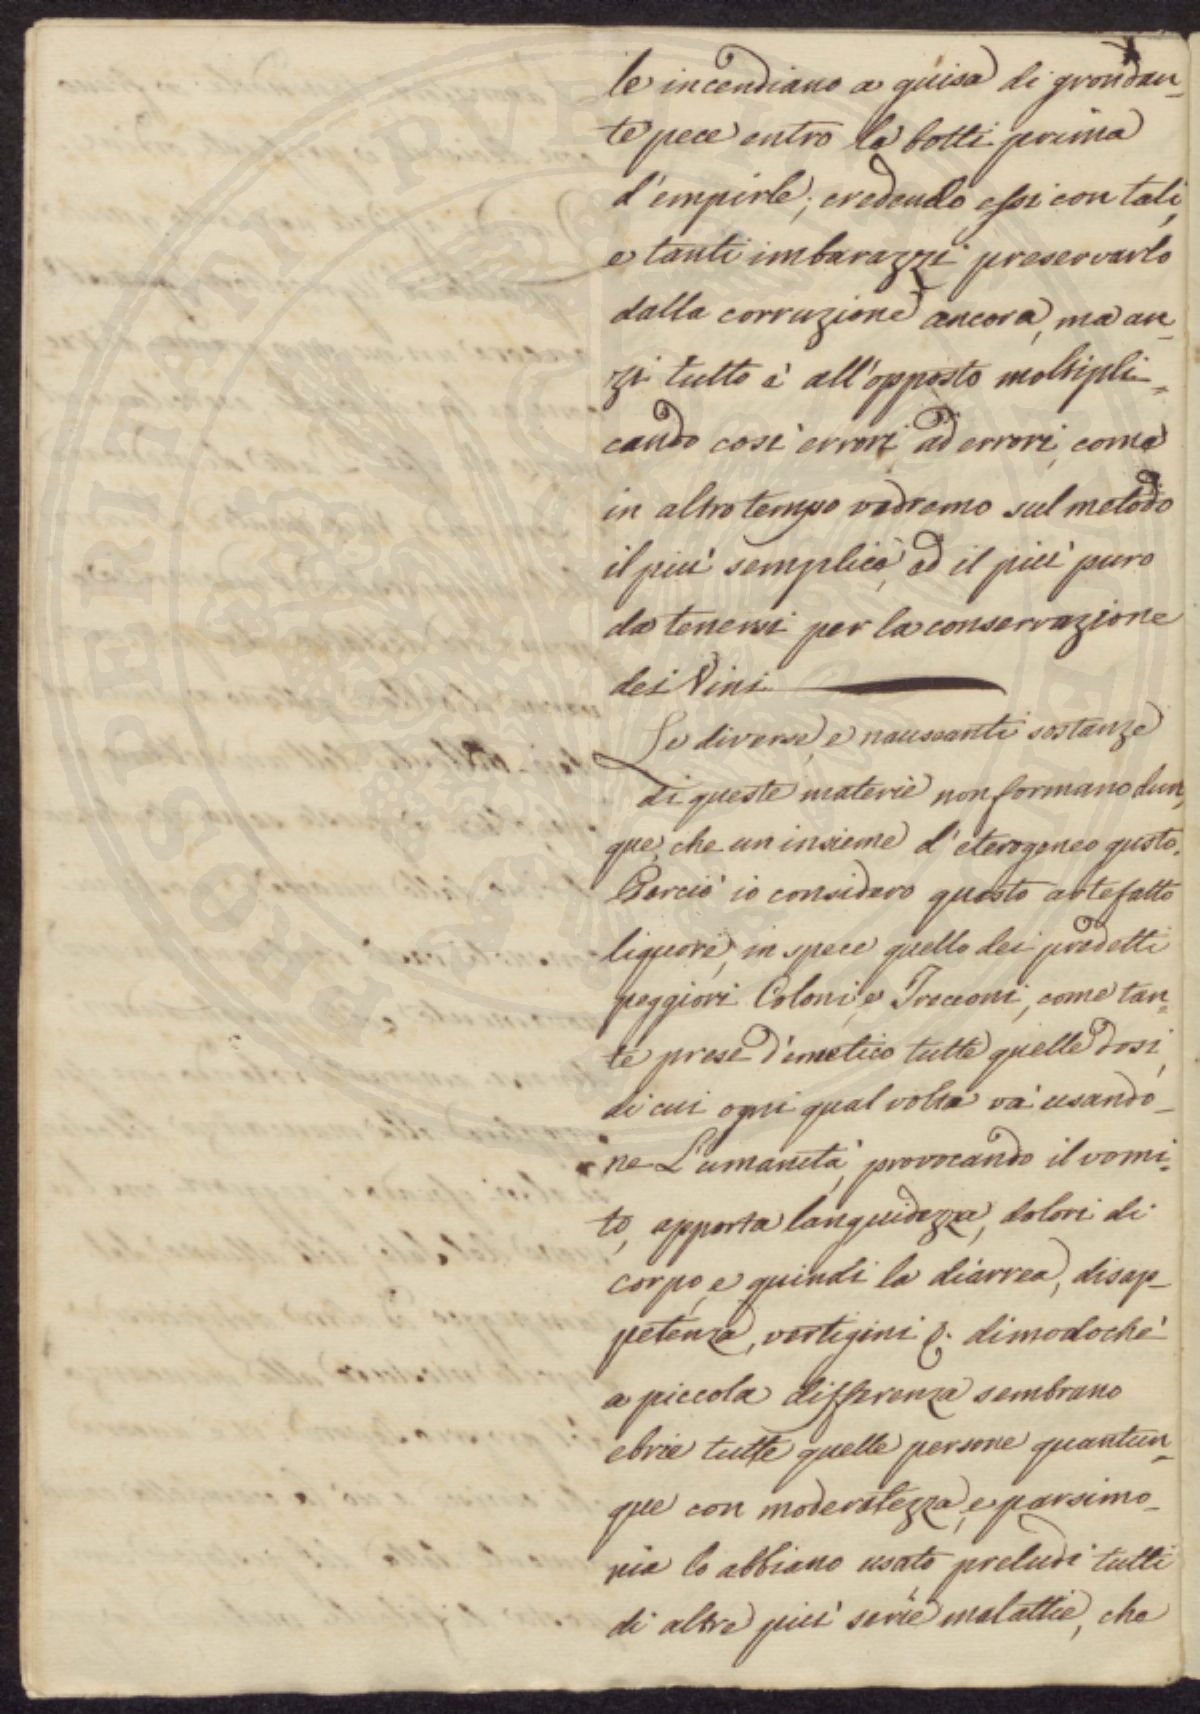 le incendiano a guisa di grondan-
te pece entro le botti prima
d'empirle; credendo essi con tali,
e tanti imbarazzi preservarlo
dalla corruzione ancora, ma an-
zi tutto è all'opposto moltipli-
cando così errori ad errori, come
in altro tempo vedremo sul metodo
il più semplice, ed il più puro
da tenersi per la conservazione
dei Vini.
Le diverse, e nauseanti sostanze
di queste materie non formano dun,
que, che un insieme d'eterogeneo gusto.
Perciò io considero questo artefatto
liquore, in spece quello dei predetti
peggiori Coloni, e Trecconi, come tan-
te prese d'emetico tutte quelle dosi,
di cui ogni qual volta và usando-
ne L'umanità, provocando il vomi-
to, apporta languidezza, dolori di
corpo, e quindi la diarrea, disap-
petenza, vertigini &. dimodochè
a piccola differenza sembrano
ebrie tutte quelle persone quantun-
que con moderatezza, e parsimo-
nia lo abbiano usato preludi tutti
di altre più serie malattie, che
PROSPERITATI PVBLICAE